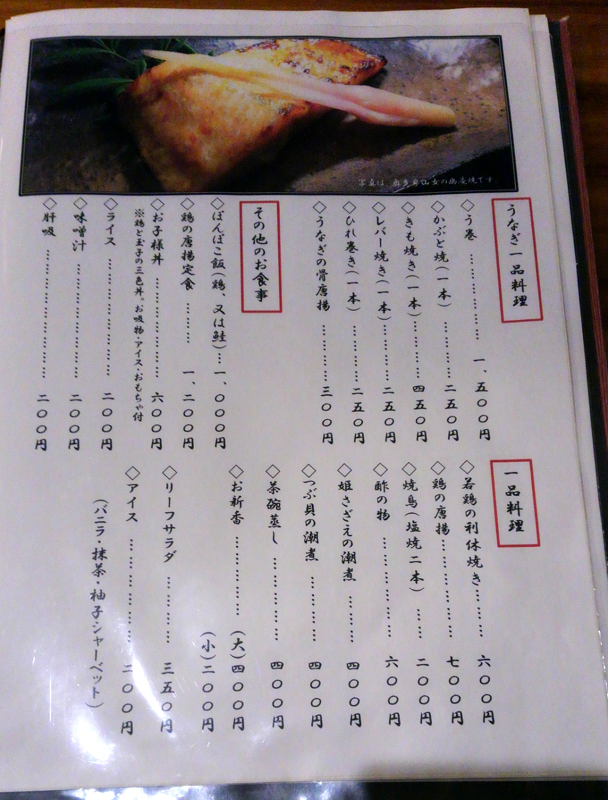 うなぎ一品料理
◇う巻 ………………… 一、五〇〇円
◇かぶと焼(一本) ………… 二五〇円
◇きも焼き(一本) ………… 四五〇円
◇レバー焼き(一本) ……… 二五〇円
◇ひれ巻き(一本) ………… 二五〇円
◇うなぎの骨唐揚 ………… 三〇〇円
その他のお食事
◇ぽんぽこ飯(鶏、又は鮭)… 一、〇〇〇円
◇鶏の唐揚定食 ……… 一、二〇〇円
◇お子様丼 ……………… 六〇〇円
※鶏と玉子の三色丼。お吸物・アイス・おもちゃ付
◇ライス ………………… 二〇〇円
◇味噌汁 ………………… 二〇〇円
◇肝吸 …………………… 二〇〇円
一品料理
◇若鶏の利休焼き……… 六〇〇円
◇鶏の唐揚……………… 七〇〇円
◇焼鳥(塩焼二本) …… 二〇〇円
◇酢の物 ……………… 六〇〇円
◇姫さざえの潮煮 …… 四〇〇円
◇つぶ貝の潮煮 ……… 四〇〇円
◇茶碗蒸し …………… 四〇〇円
◇お新香 ………… (大)四〇〇円
(小)二〇〇円
◇リーフサラダ ……… 三五〇円
◇アイス ……………… 二〇〇円
(バニラ・抹茶・柚子シャーベット)